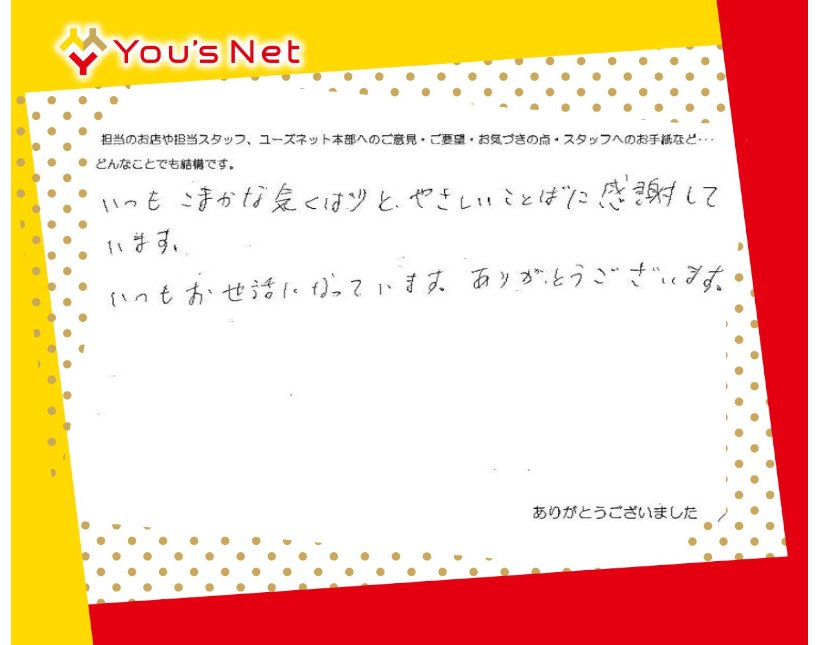 You's Net
担当のお店や担当スタッフ、ユーズネット本部へのご意見・ご要望・お気づきの点・スタッフへのお手紙など・・・
どんなことでも結構です。
いつもこまかな気くばりと、やさしいことばに感謝して
います。
いつもお世話になっています。ありがとうございます。
ありがとうございました